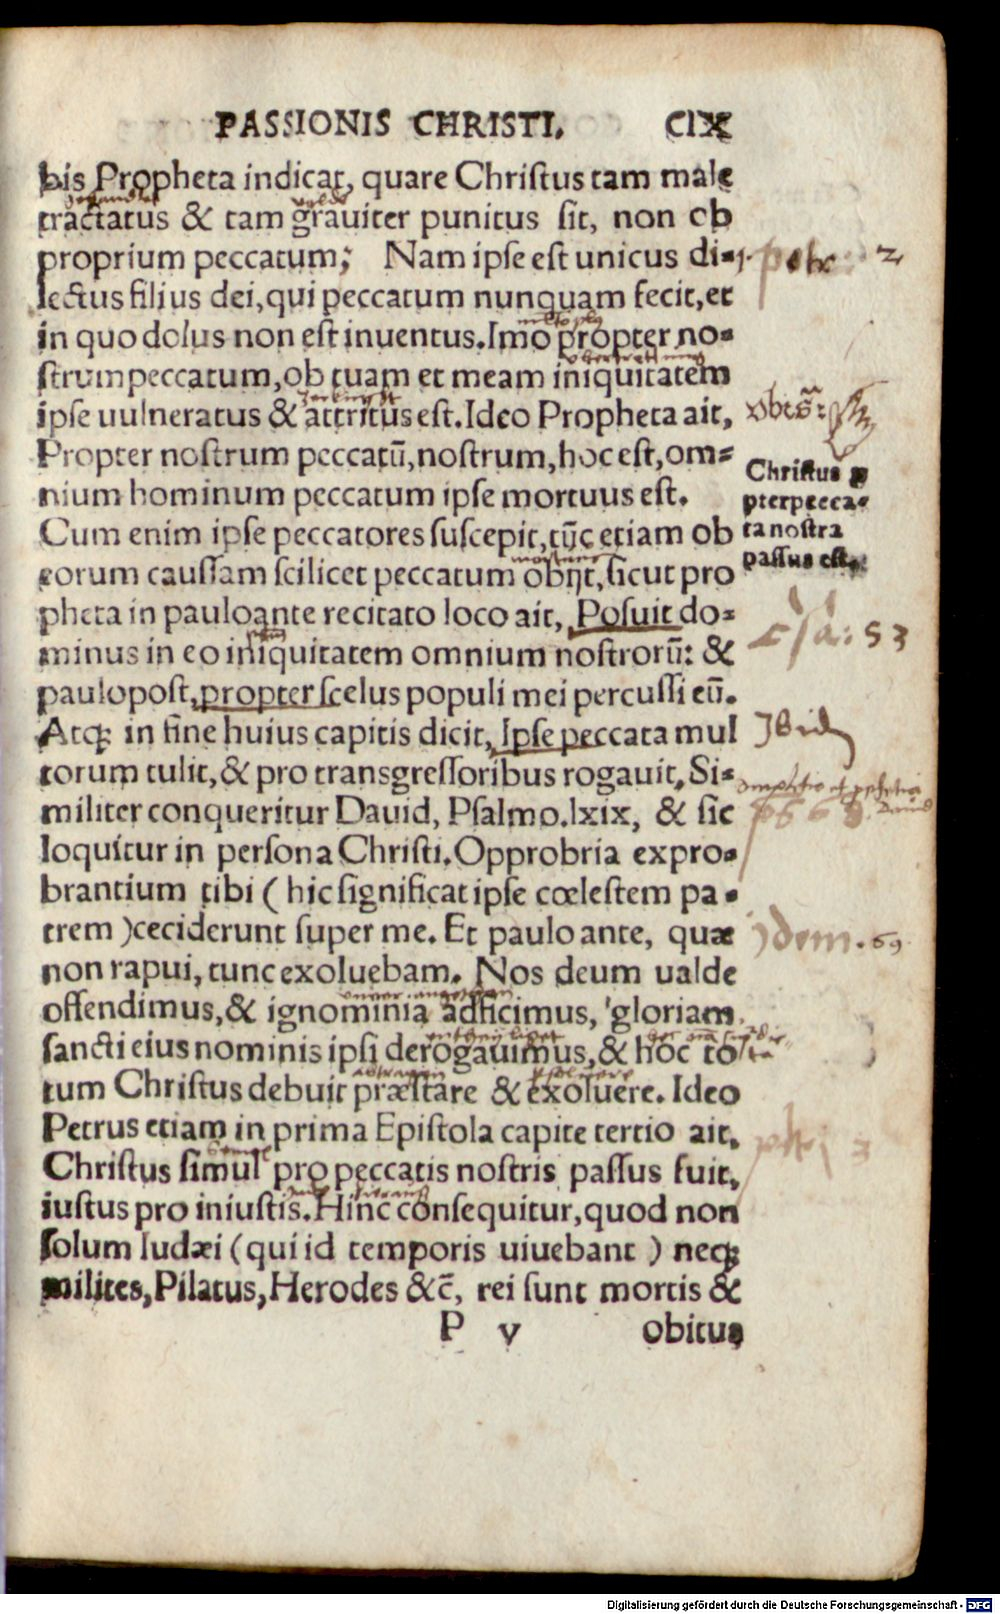 PASSIONIS CHRISTI. CIX
bis Propheta indicat, quare Chriſtus tam male
tractatus & tam grauiter punitus ſit, non ob
proprium peccatum; Nam ipſe est unicus di-
lectus filius dei, qui peccatum nunquam fecit, et
in quo dolus non eſt inuentus. Imo propter no-
ſtrum peccatum, ob tuam et meam iniquitatem
ipſe uulneratus & attritus est. Ideo Propheta ait,
Propter noſtrum peccatū, noſtrum, hoc eſt, om-
nium hominum peccatum ipſe mortuus eſt.
Cum enim ipſe peccatores ſuſcepit, tūc etiam ob
eorum cauſſam ſcilicet peccatum obijt, ſicut pro
pheta in pauloante recitato loco ait, Poſuit do-
minus in eo iniquitatem omnium noſtrorū: &
paulopoſt, propter ſcelus populi mei percuſſi eū.
Atq; in fine huius capitis dicit, Ipſe peccata mul
torum tulit, & pro transgreſſoribus rogauit. Si-
militer conqueritur Dauid, Pſalmo.lxix, & ſic
loquitur in perſona Chriſti. Opprobria expro-
brantium tibi ( hic ſignificat ipſe cœleſtem pa-
trem )ceciderunt ſuper me. Et paulo ante, quæ
non rapui, tunc exoluebam. Nos deum ualde
offendimus, & ignominia adficimus, gloriam
ſancti eius nominis ipſi derogauimus, & hoc to
tum Chriſtus debuit præſtare & exoluere. Ideo
Petrus etiam in prima Epiſtola capite tertio ait.
Chriſtus ſimul pro peccatis noſtris paſſus fuit,
iuſtus pro iniuſtis. Hinc conſequitur, quod non
ſolum Iudæi (qui id temporis uiuebant ) neq;
milites, Pilatus, Herodes &c̄, rei ſunt mortis &
P v obitus
2
Chriſtus ꝓ
pter pecca-
ta noſtra
paſſus eſt.
Esa: 53
Ibid
Idem. 69
Digitalisierung gefördert durch die Deutsche Forschungsgemeinschaft - DFG